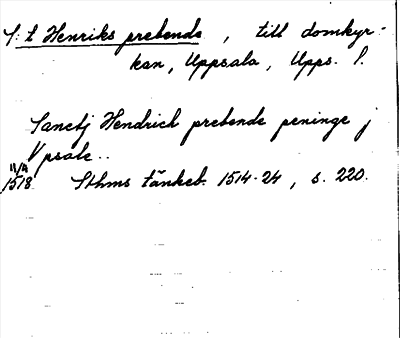 S:t Henriks prebende, till domkyr-
kan, Uppsala, Upps. l.
Sanctj Hendrich prebende peninge j
Vpsale..
11/4
1518 Sthms tänkeb. 1514-24, s. 220.